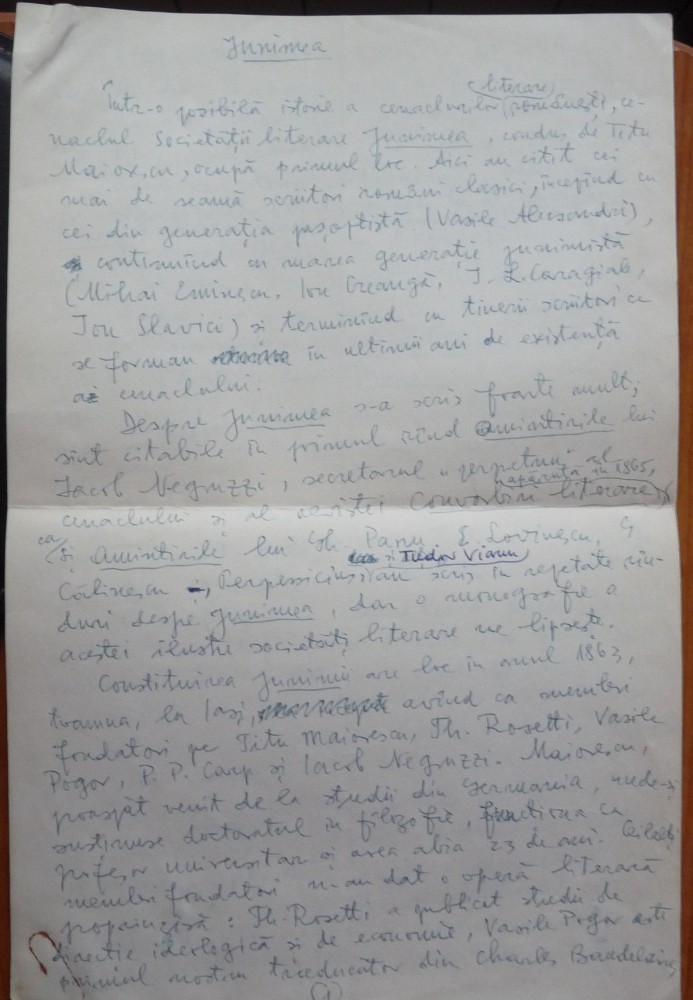 Junimea
Într-o posibilă istorie a cenaclurilor literare (românești), ce-
naclul Societății literare Junimea, condus de Titu
Maiorescu, ocupă primul loc. Aici au citit cei
mai de seamă scriitori români clasici, începînd cu
cei din generația pașoptistă (Vasile Alecsandri),
continuînd cu marea generație junimistă
(Mihai Eminescu, Ion Creangă, I. L. Caragiale,
Ion Slavici) și terminînd cu tinerii scriitori ce
se formau în ultimii ani de existență
ai cenaclului.
Despre Junimea s-a scris foarte mult;
sînt citabile în primul rînd Amintirile lui
Iacob Negruzzi, secretarul „perpetuu" al
cenaclului și al revistei Convorbiri literare, apărută în 1865,
ca și Amintirile lui Gh. Panu. E. Lovinescu, G.
Călinescu, Perpessicius și Tudor Vianu au scris în repetate rîn-
duri despre Junimea, dar o monografie a
acestei ilustre societăți literare ne lipsește.
Constituirea Junimii are loc în anul 1863,
toamna, la Iași, avînd ca membri
fondatori pe Titu Maiorescu, Th. Rosetti, Vasile
Pogor, P. P. Carp și Iacob Negruzzi. Maiorescu,
proaspăt venit de la studii din Germania, unde-și
susținuse doctoratul în filozofie, funcționa ca
profesor universitar și avea abia 23 de ani. Ceilalți
membri fondatori n-au dat o operă literară
propriuzisă: Th. Rosetti a publicat studii de
direcție ideologică și de economie, Vasile Pogor este
primul nostru traducător din Charles Baudelaire,
1